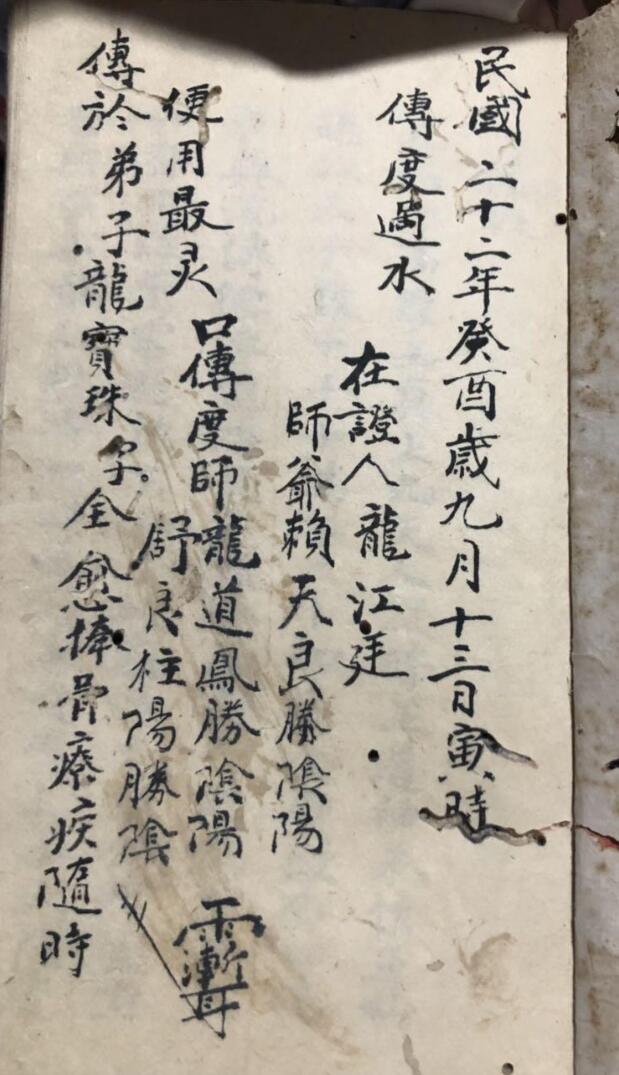 民國二十二年癸酉歲九月十三日寅時
傳度過水
在證人龍江廷
師爺賴天良勝陰陽
口傳度師龍道鳳勝陰陽
舒良柱陽勝陰
便用最灵
傳於弟子龍寶珠子全愈捧骨療疾隨時